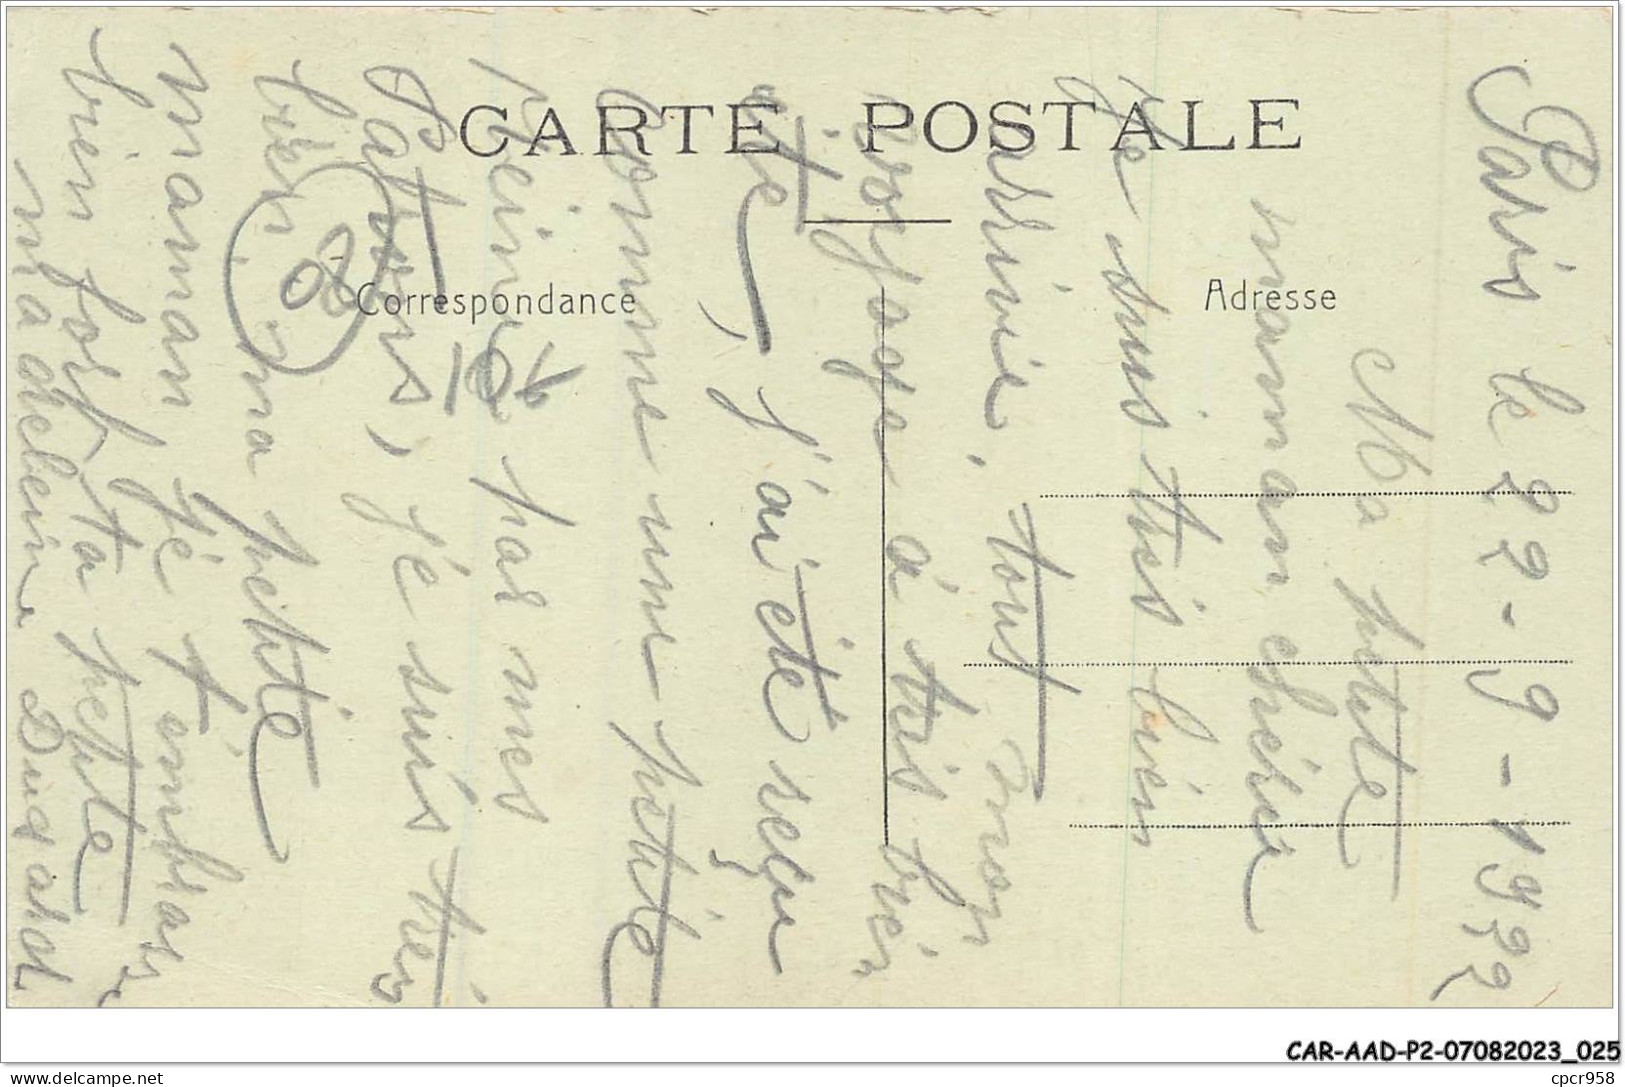 CARTE POSTALE
Correspondance
Adresse
Paris le 22-9-1922
Ma petite
maman chérie
Je suis tres bien
arrivée, tout mon
voyage a tres bien
été, j'ai été reçu
comme une petite
reine par mes
patrons, je suis très
bien, ma petite
maman je t'embrasse
bien fort ta petite
madeleine
10
CAR-AAD-P2-07082023_025
cpcr958